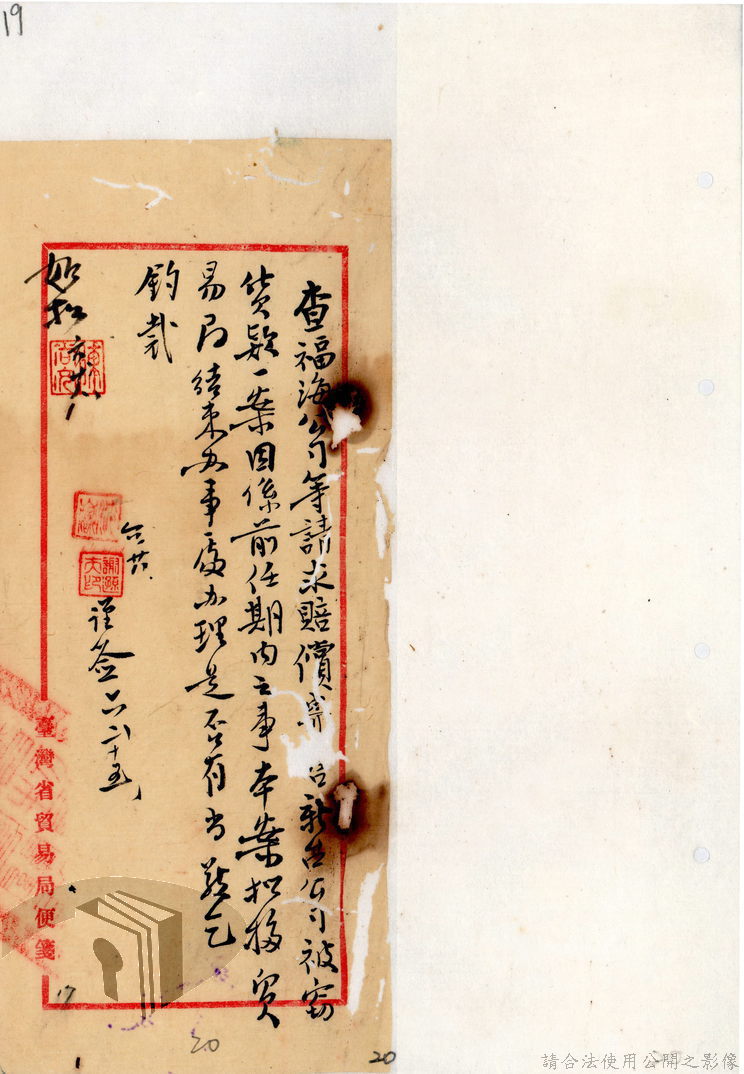 19
查福海公司等請求賠償寄 台新台公司被竊
貨款一案因係前任期内之事本案擬移貿
易局結束办事處办理是否有当敬乞
鈞裁
謹簽六二十五
六廿
謝
如擬
六廿
臺灣省貿易局便箋
17
20
1
20
請合法使用公開之影像